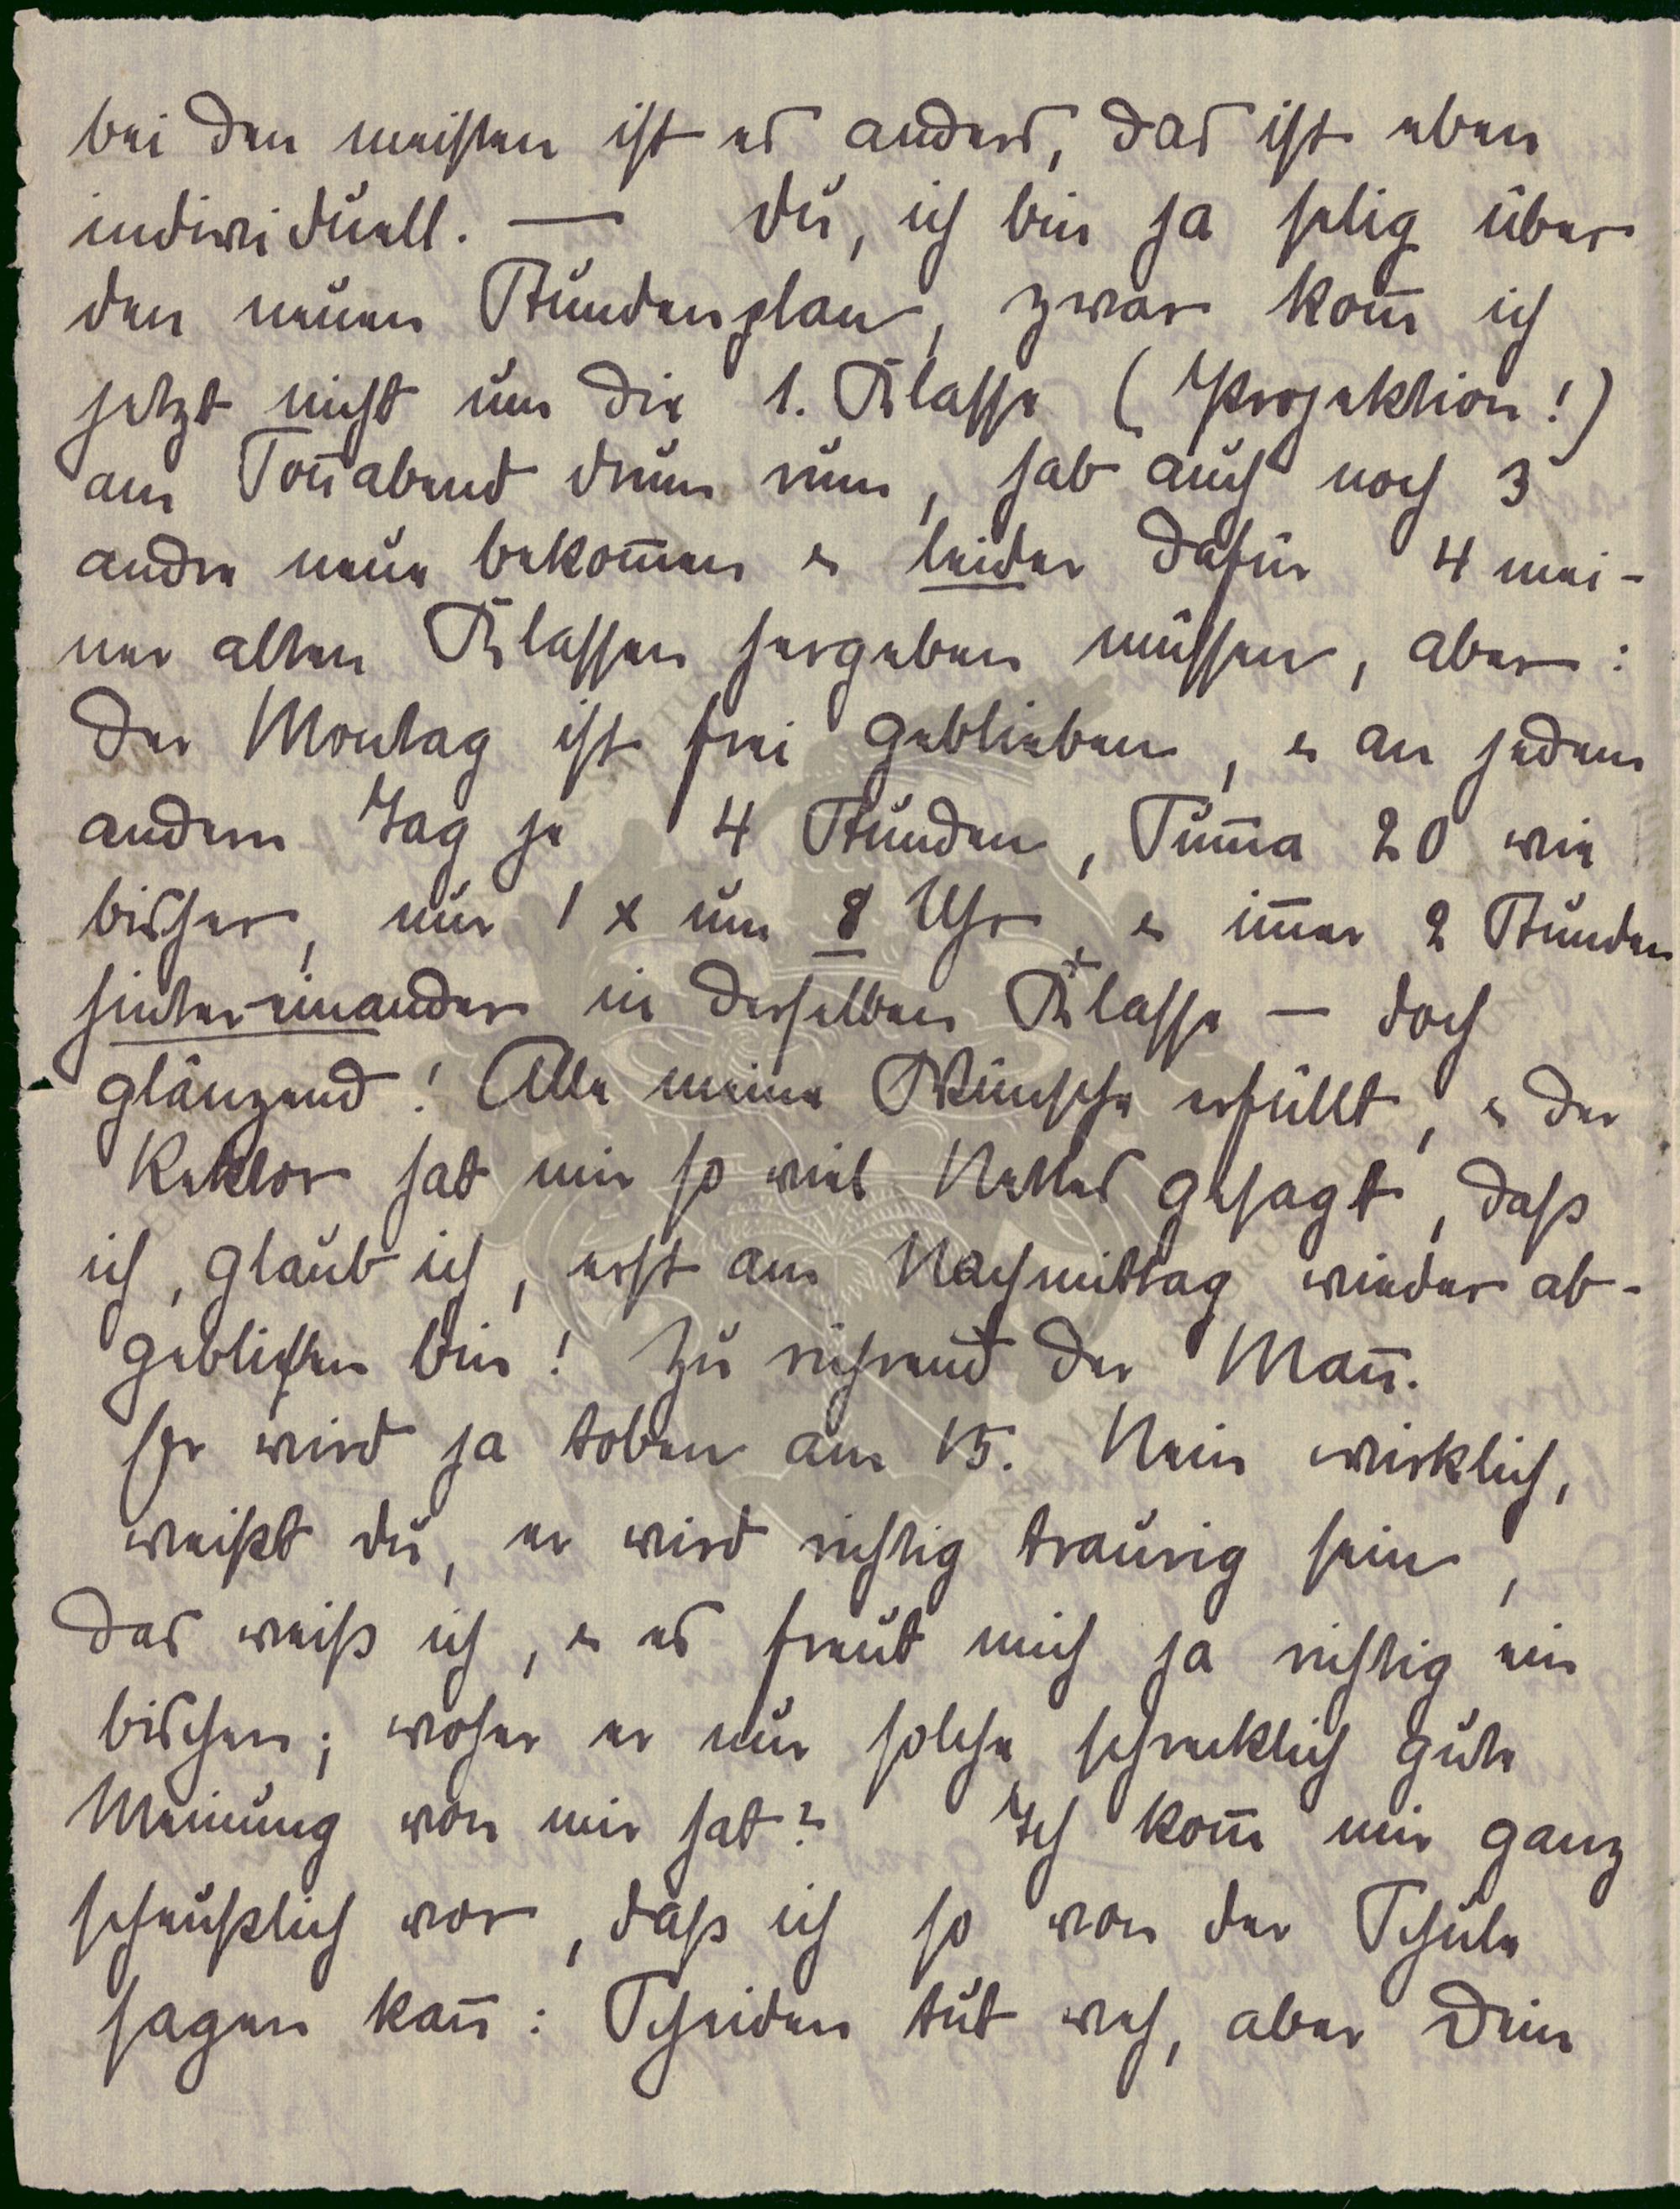 bei den meisten ist es anders, das ist eben
individuell. — Du, ich bin ja selig über
den neuen Stundenplan, zwar kom̅ ich
jetzt nicht um die 1. Klasse (Projektion!)
am Son̅abend drum rum, hab auch noch 3
andre neue bekom̅en u. leider dafür 4 mei-
ner alten Klassen hergeben müssen, aber:
Der Montag ist frei geblieben, u. an jedem
andern Tag je 4 Stunden, Sum̅a 20 wie
bisher, nur 1 x um 8 Uhr, u. im̅er 2 Stunden
hintereinander in derselben Klasse — doch
glänzend! Alle meine Wünsche erfüllt, u. der
Rektor hat mir so viel Nettes gesagt, daß
ich, glaub ich, erst am Nachmittag wieder ab-
geblichen bin! Zu rührend der Man̅.
Er wird ja toben am 15. Nein wirklich,
weißt du, er wird richtig traurig sein,
das weiß ich, u. es freut mich ja richtig ein
bischen; woher er nur solche schrecklich gute
Meinung von mir hat? Ich kom̅ mir ganz
scheußlich vor, daß ich so von der Schule
sagen kan̅: Scheiden tut weh, aber Dein